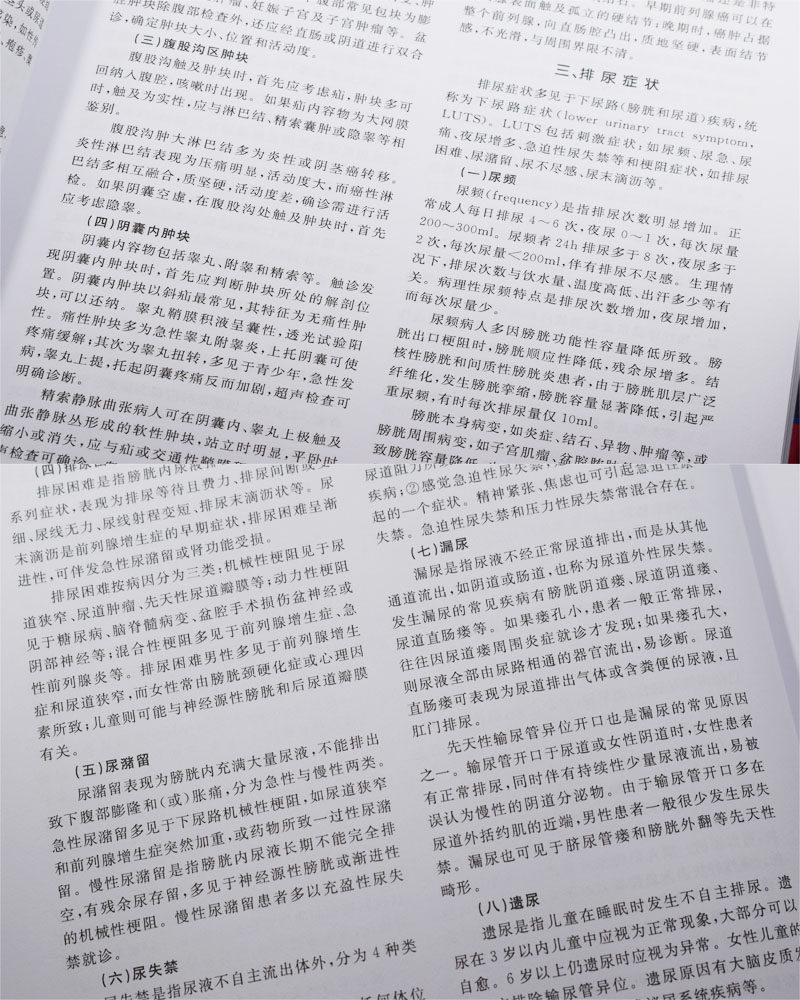 脏肿块除腹部检查外,还应经直肠或阴道进行双合
诊,确定肿块大小、位置和活动度。
(三)腹股沟区肿块
腹股沟触及肿块时,首先应考虑疝,肿块多可
回纳入腹腔,咳嗽时出现。如果疝内容物为大网膜
时,触及为实性,应与淋巴结、精索囊肿或隐睾等相
鉴别。
腹股沟肿大淋巴结多为炎性或阴茎癌转移。
炎性淋巴结表现为压痛明显,活动度大,而癌性淋
巴结多相互融合,质坚硬,活动度差,确诊需进行活
检。如果阴囊空虚,在腹股沟处触及肿块时,首先
应考虑隐睾。
(四)阴囊内肿块
阴囊内容物包括睾丸、附睾和精索等。触诊发
现阴囊内肿块时,首先应判断肿块所处的解剖位
置。阴囊内肿块以斜疝最常见,其特征为无痛性肿
块,可以还纳。睾丸鞘膜积液呈囊性,透光试验阳
性。痛性肿块多为急性睾丸附睾炎,上托阴囊可使
疼痛缓解;其次为睾丸扭转,多见于青少年,急性发
病,睾丸上提,托起阴囊疼痛反而加剧,超声检查可
明确诊断。
精索静脉曲张病人可在阴囊内、睾丸上极触及
曲张静脉丛形成的软性肿块,站立时明显,平卧时
缩小或消失,应与疝或交通性鞘膜
整个前列腺,向直肠腔凸出,质地坚硬,表面结节
感,不光滑,与周围界限不清。
三、排尿症状
排尿症状多见于下尿路(膀胱和尿道)疾病,统
称为下尿路症状(lower urinary tract symptom,
LUTS)。LUTS包括刺激症状;如尿频、尿急、尿
痛、夜尿增多、急迫性尿失禁等和梗阻症状,如排尿
困难、尿潴留、尿不尽感、尿末滴沥等。
(一)尿频
尿频(frequency)是指排尿次数明显增加。正
常成人每日排尿4～6次,夜尿0～1次,每次尿量
200～300ml。尿频者24h排尿多于8次,夜尿多于
2次,每次尿量<200ml,伴有排尿不尽感。生理情
况下,排尿次数与饮水量、温度高低、出汗多少等有
关。病理性尿频特点是排尿次数增加,夜尿增加,
而每次尿量少。
尿频病人多因膀胱功能性容量降低所致。膀
胱出口梗阻时,膀胱顺应性降低,残余尿增多。结
核性膀胱和间质性膀胱炎患者,由于膀胱肌层广泛
纤维化,发生膀胱挛缩,膀胱容量显著降低,引起严
重尿频,有时每次排尿量仅10ml。
膀胱本身病变,如炎症、结石、异物、肿瘤等,或
膀胱周围病变,如子宫肌瘤、盆腔
致膀胱容量降低
排尿困难是指膀胱内尿液
系列症状,表现为排尿等待且费力、排尿间断或
细、尿线无力、尿线射程变短、排尿末滴沥状等。尿
末滴沥是前列腺增生症的早期症状,排尿困难呈渐
进性,可伴发急性尿潴留或肾功能受损。
排尿困难按病因分为三类;机械性梗阻见于尿
道狭窄、尿道肿瘤、先天性尿道瓣膜等;动力性梗阻
见于糖尿病、脑脊髓病变、盆腔手术损伤盆神经或
阴部神经等;混合性梗阻多见于前列腺增生症、急
性前列腺炎等。排尿困难男性多见于前列腺增生
症和尿道狭窄,而女性常由膀胱颈硬化症或心理因
素所致;儿童则可能与神经源性膀胱和后尿道瓣膜
有关。
(五)尿潴留
尿潴留表现为膀胱内充满大量尿液,不能排出
致下腹部膨隆和(或)胀痛,分为急性与慢性两类。
急性尿潴留多见于下尿路机械性梗阻,如尿道狭窄
和前列腺增生症突然加重,或药物所致一过性尿潴
留。慢性尿潴留是指膀胱内尿液长期不能完全排
空,有残余尿存留,多见于神经源性膀胱或渐进性
的机械性梗阻。慢性尿潴留患者多以充盈性尿失
禁就诊。
(六)尿失禁
尿失禁是指尿液不自主流出体外,分为4种类
疾病;②感觉急迫性尿失禁,
起的一个症状。精神紧张、焦虑也可引起急迫性尿
失禁。急迫性尿失禁和压力性尿失禁常混合存在。
(七)漏尿
漏尿是指尿液不经正常尿道排出,而是从其他
通道流出,如阴道或肠道,也称为尿道外性尿失禁。
发生漏尿的常见疾病有膀胱阴道瘘、尿道阴道瘘、
尿道直肠瘘等。如果瘘孔小,患者一般正常排尿,
往往因尿道瘘周围炎症就诊才发现;如果瘘孔大,
则尿液全部由尿路相通的器官流出,易诊断。尿道
直肠瘘可表现为尿道排出气体或含粪便的尿液,且
肛门排尿。
先天性输尿管异位开口也是漏尿的常见原因
之一。输尿管开口于尿道或女性阴道时,女性患者
有正常排尿,同时伴有持续性少量尿液流出,易被
误认为慢性的阴道分泌物。由于输尿管开口多在
尿道外括约肌的近端,男性患者一般很少发生尿失
禁。漏尿也可见于脐尿管瘘和膀胱外翻等先天性
畸形。
(八)遗尿
遗尿是指儿童在睡眠时发生不自主排尿。遗
尿在3岁以内儿童中应视为正常现象,大部分可以
自愈。6岁以上仍遗尿时应视为异常。女性儿童的
排除输尿管异位。遗尿原因有大脑皮质发
泌尿系统疾病等。